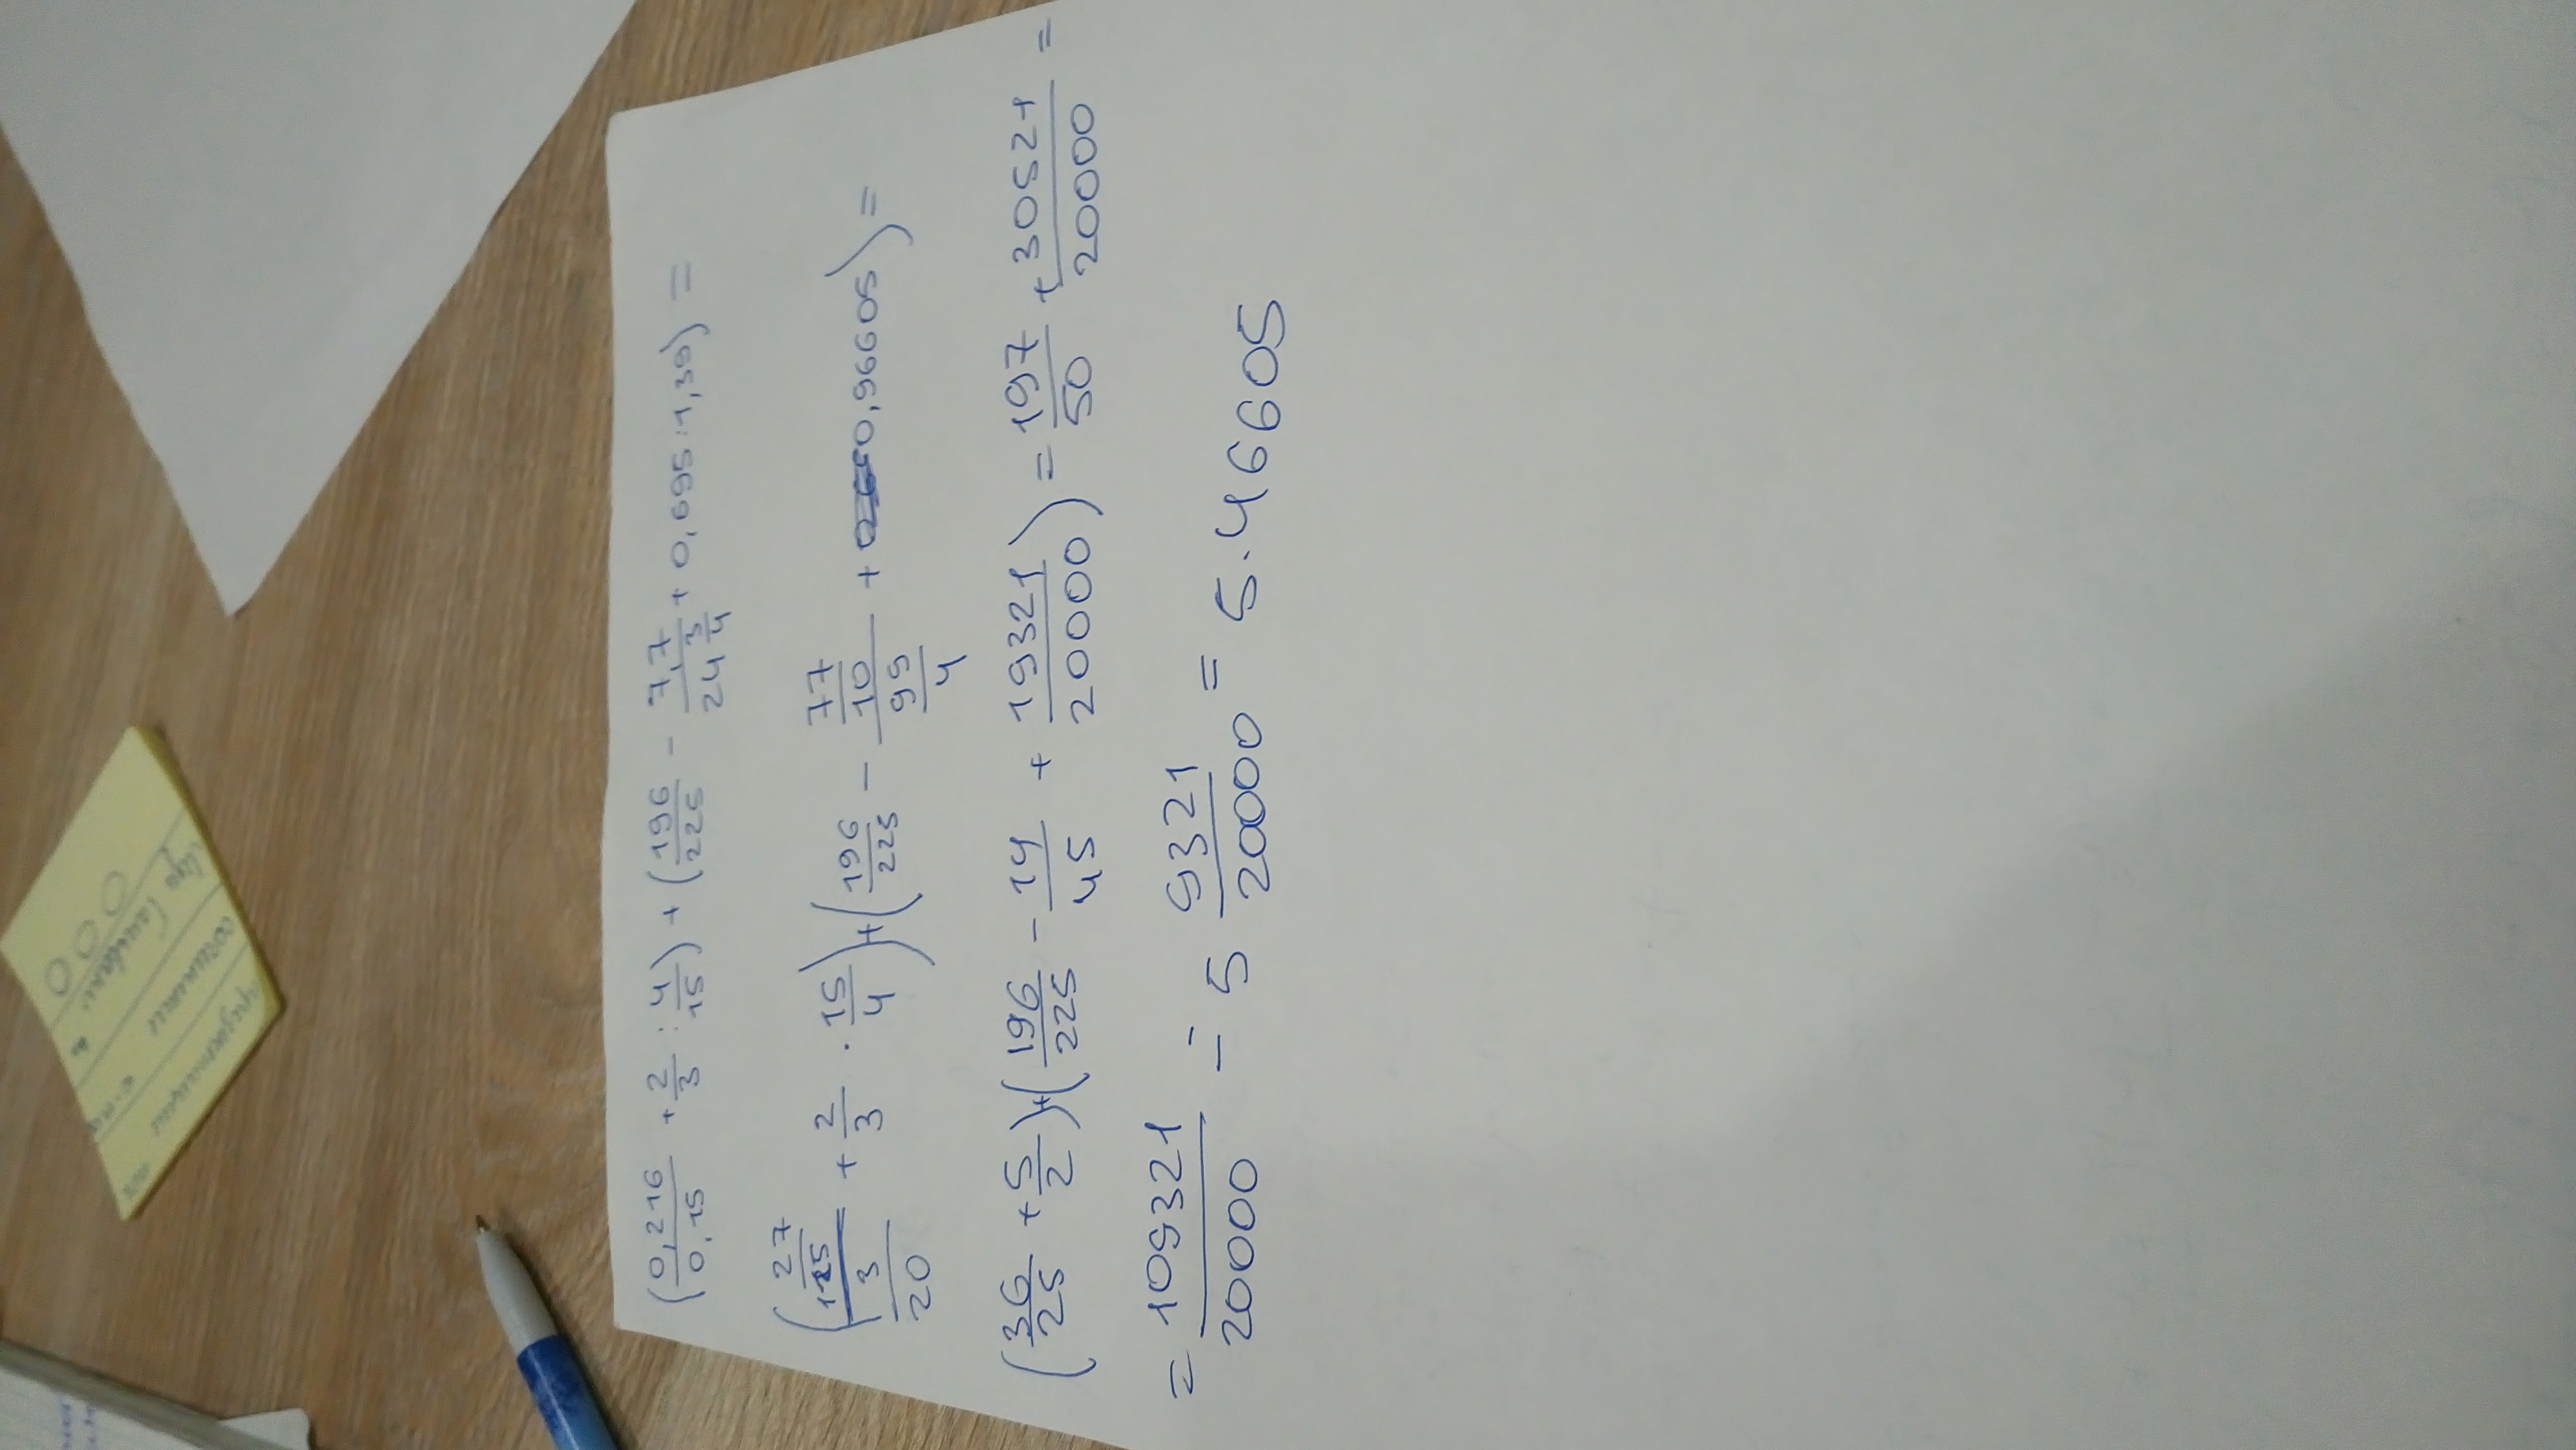 (0,216/0,15 + 2/3 : 4/15) + (196/225 - 7,7/24 3/4 + 0,695 : 1,39) =
(27/125/3/20 + 2/3 · 15/4) + (196/225 - 77/10/99/4 + 0,96605) =
(36/25 + 5/2) + (196/225 - 14/45 + 19321/20000) = 197/50 + 30521/20000 =
= 109321/20000 = 5 9321/20000 = 5.46605